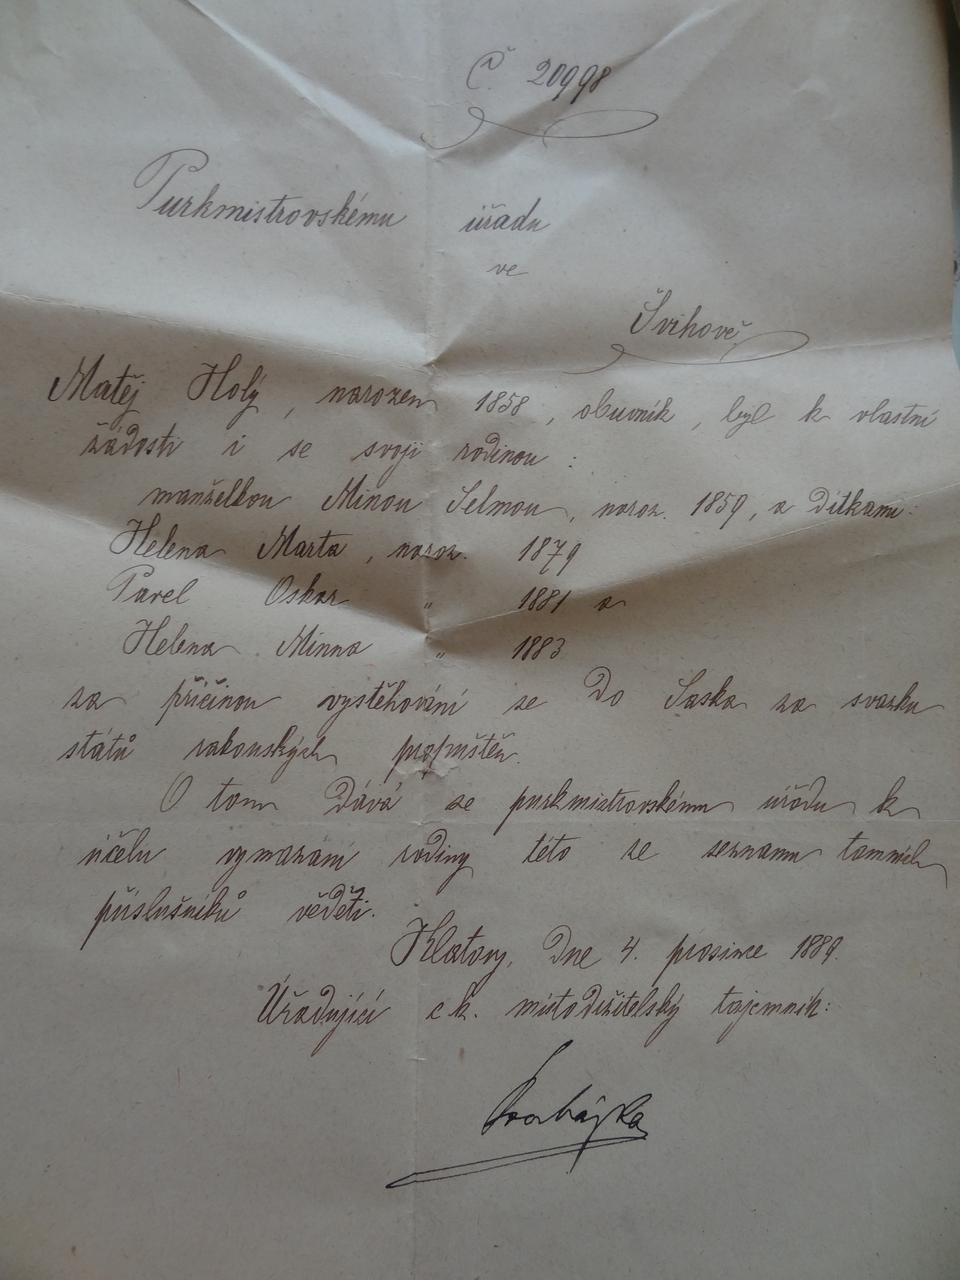 Č 20998
Purkmistrovskému úřadu
ve
Švihově
Matěj Holý, narozen 1858, obuvník, byl k vlastní
žádosti i se svojí rodinou:
manželkou Minou Selmou, naroz. 1859, a dítkami:
Helena Marta, naroz. 1879
Pavel Oskar " 1881 a
Helena Minna " 1883
za příčinou vystěhování se do Saska ze svazku
států rakouských propuštěn.
O tom dává se purkmistrovskému úřadu k
účelu vymazání rodiny této ze seznamu tamních
příslušníků věděti.
Klatovy, dne 4. prosince 1889.
Úřadující c. k. místodržitelský tajemník: